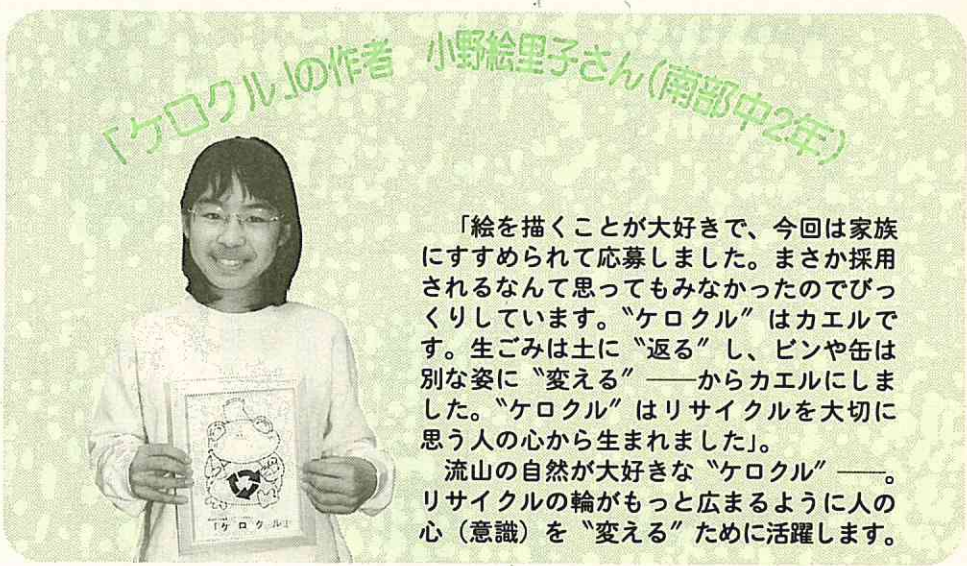 「ケロクル」の作者　小野絵里子さん(南部中2年)
「絵を描くことが大好きで、今回は家族
にすすめられて応募しました。まさか採用
されるなんて思ってもみなかったのでびっ
くりしています。〝ケロクル〟はカエルで
す。生ごみは土に〝返る〟し、ビンや缶は
別な姿に〝変える〟――からカエルにしま
した。〝ケロクル〟はリサイクルを大切に
思う人の心から生まれました」。
流山の自然が大好きな〝ケロクル〟――。
リサイクルの輪がもっと広まるように人の
心（意識）を〝変える〟ために活躍します。
「ケロクル」